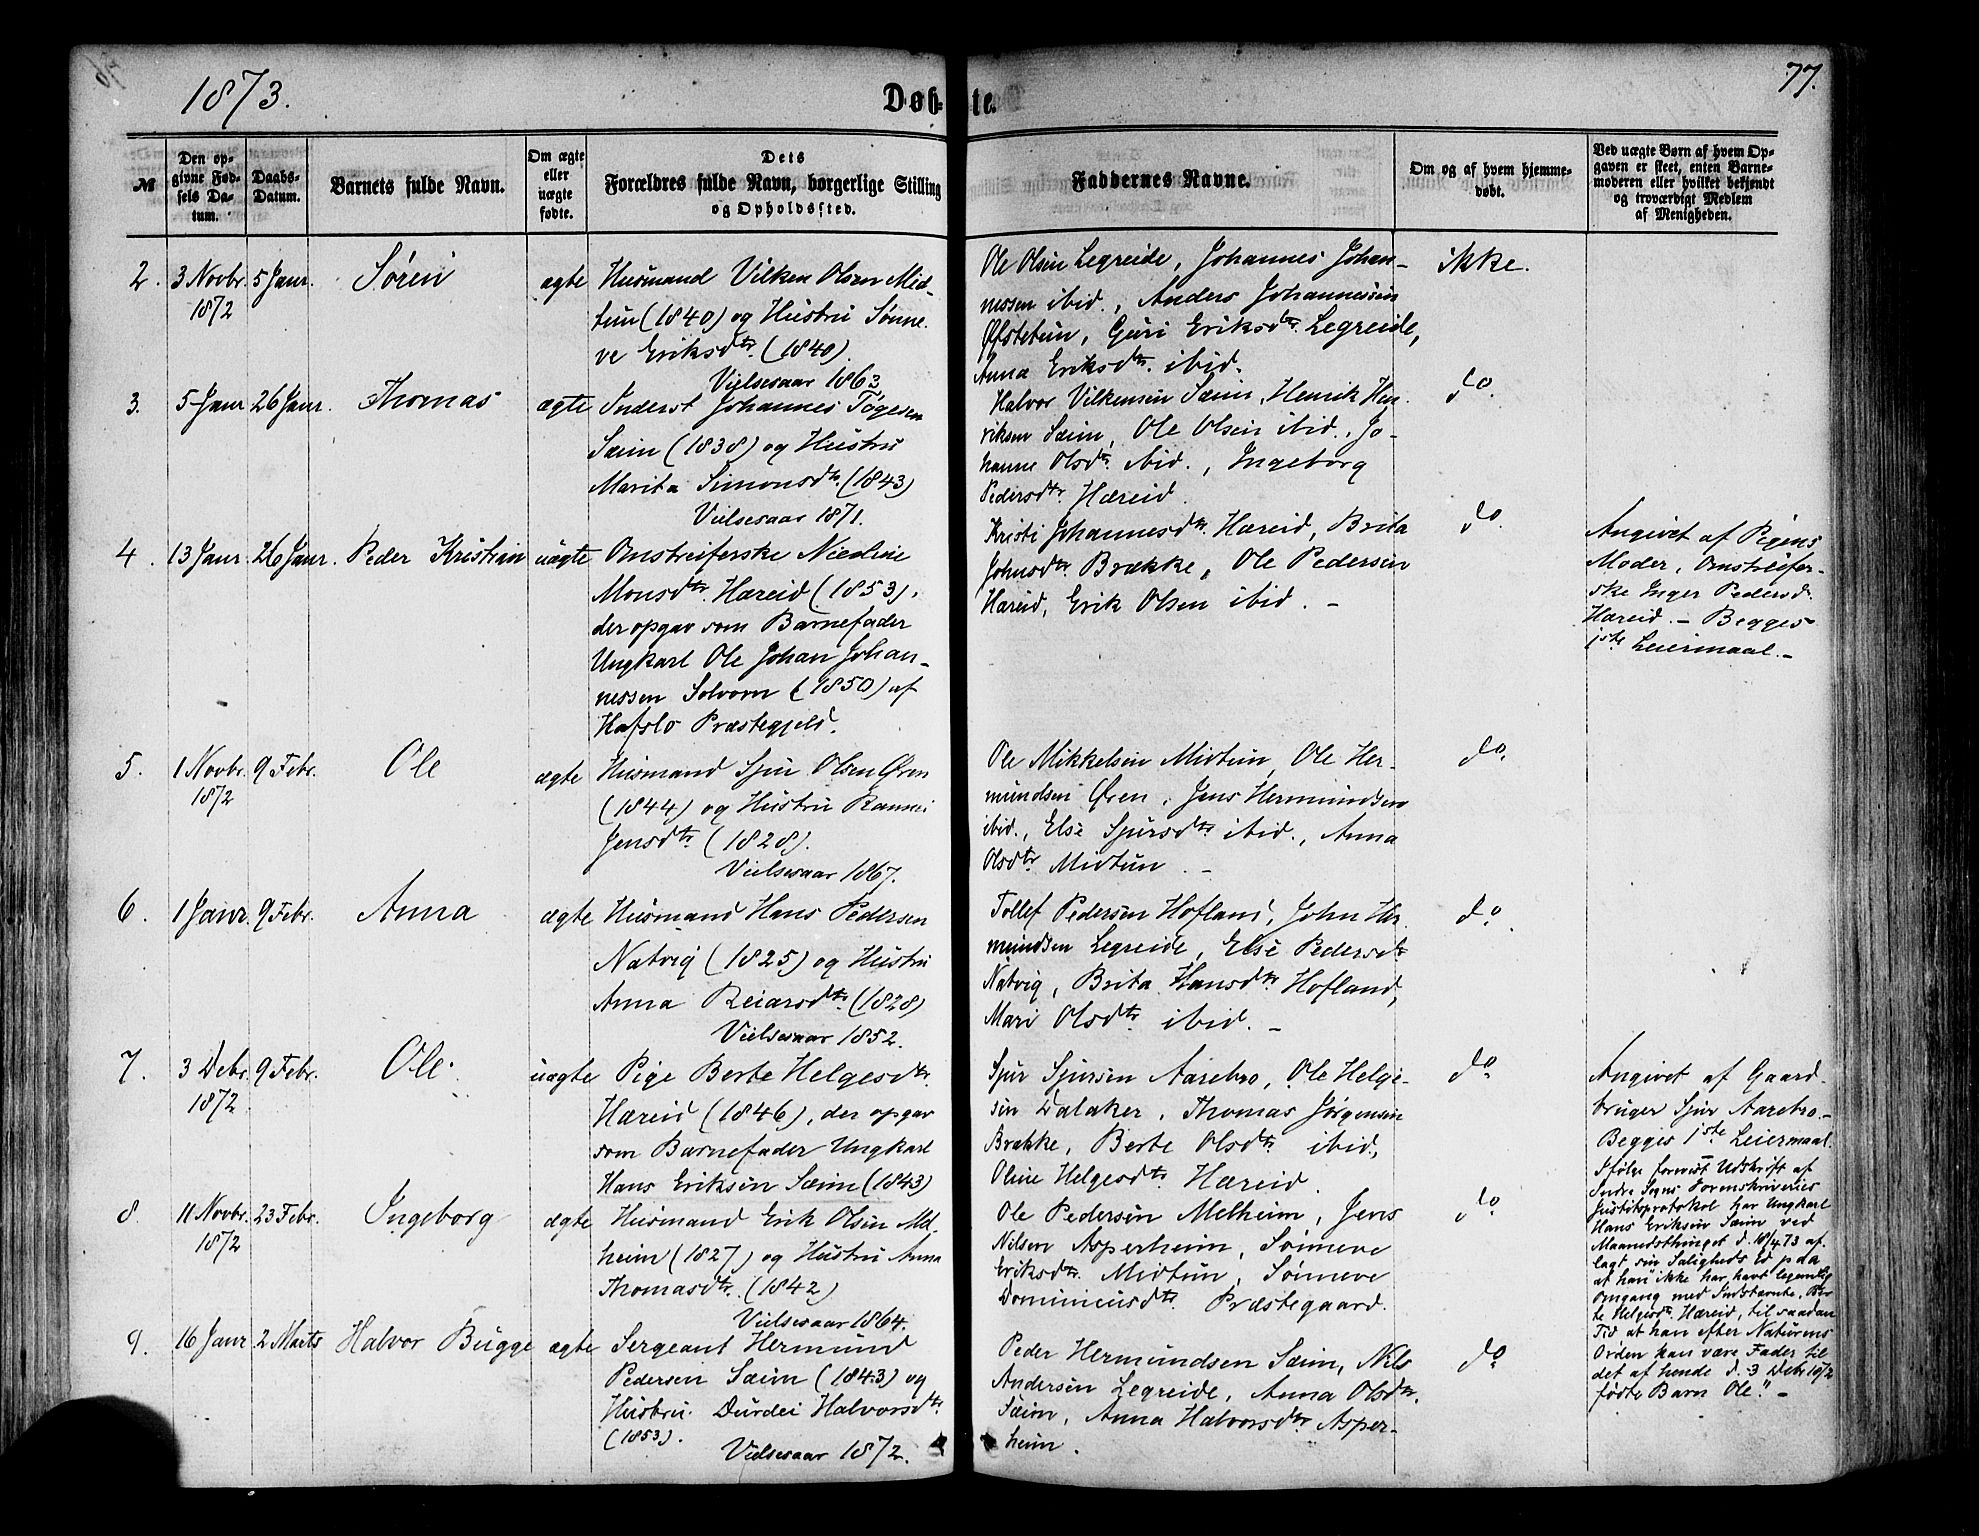 1873.
Døb-
te.
77.
№
Den op-
givne Fød-
sels Da-
tum.
Daabs-
Datum.
Barnets fulde Navn.
Om ægte
eller
uægte
fødte.
Dets
Forældres fulde Navn, borgerlige Stilling
og Opholdssted.
Faddernes Navne.
Om og af hvem hjemme-
døbt.
Ved uægte Børn af hvem Op-
gaven er skeet, enten Barne-
moderen eller hvilket bekjendt
og troværdigt Medlem
af Menigheden.
2. 3 Novbr. 5 Janr. Søren ægte
1872
Husmand Vilken Olsen Mid-
tun (1840) og Hustru Sønne-
ve Eriksdtr. (1840).
Vielsesaar 1863
Ole Olsen Legreide, Johannes Johan-
nessen ibid., Anders Johannessen
Øfstetun, Guri Eriksdtr. Legreide,
Anna Eriksdtr. ibid.
ikke.
3. 5 Janr 26 Janr. Thomas ægte
Inderst Johannes Tøgesen
Sæim (1838) og Hustru
Marita Simonsdtr. (1843)
Vielsesaar 1871.
Halvor Vilkensen Sæim, Henrik Hen-
riksen Sæim, Ole Olsen ibid., Jo-
hanne Olsdtr. ibid., Ingeborg
Pedersdtr. Hæreid.
do.
4. 13 Janr. 26 Janr. Peder Kristian uægte
Omstreiferske Nicoline
Monsdtr. Hæreid (1853),
der opgav som Barnefader
Ungkarl Ole Johan Johan-
nessen Solvorn (1850) af
Hafslo Præstegjeld.
Kristi Johannesdtr. Hæreid, Brita
Johnsdtr. Brække, Ole Pedersen
Hæreid, Erik Olsen ibid. -
do.
Angivet af Pigens
Moder, Omstreifer-
ske Inger Pedersd.
Hæreid. - Begges
1ste Leiermaal. -
5. 1 Novbr. 9 Febr. Ole ægte
1872
Husmand Sjur Olsen Øren
(1844) og Hustru Rannei
Jensdtr. (1828).
Vielsesaar 1867.
Ole Mikkelsen Midtun, Ole Her-
mundsen Øren, Jens Hermundsen
ibid., Else Sjursdtr. ibid., Anna
Olsdtr. Midtun. -
do.
6. 1 Janr. 9 Febr. Anna ægte
Husmand Hans Pedersen
Natvig (1825) og Hustru
Anna Reiarsdtr. (1828)
Vielsesaar 1852.
Tollef Pedersen Hofland, John Her-
mundsen Legreide, Else Pedersdtr.
Natvig, Brita Hansdtr. Hofland,
Mari Olsdtr. ibid. -
do.
7. 3 Debr. 9 Febr. Ole. uægte
1872.
Pige Berte Helgesdtr.
Hæreid (1846), der opgav
som Barnefader Ungkarl
Hans Eriksen Sæim (1843)
Sjur Sjursen Aarebro, Ole Helge-
sen Dalaker, Thomas Jørgensen
Brække, Berte Olsdtr. ibid,
Oline Helgesdtr. Hæreid.
do.
Angivet af Gaard-
bruger Sjur Aarebro. -
Begges 1ste Leiermaal.
Ifølge forevist Udskrift af
Indre Sogns Sorenskriveries
Justitsprotokol har Ungkarl
Hans Eriksen Sæim ved
Maanedsthinget d. 18/4 73 af-
lagt sin Saligheds Ed paa
at han ikke har havt legemlig
Omgang med Indstævnte, Ber-
te Helgesdtr. Hæreid, til saadan
Tid at han efter Naturens
Orden kan være Fader til
det af hende d. 3 Debr 1872
fødte Barn Ole." -
8. 11 Novbr. 23 Febr. Ingeborg ægte
1872
Husmand Erik Olsen Mel-
heim (1827) og Hustru Anna
Thomasdtr. (1842)
Vielsesaar 1864.
Ole Pedersen Melheim, Jens
Nilsen Asperheim, Sønneve
Eriksdtr. Midtun, Sønneve
Dominicusdtr. Præstegaard.
do
9. 16 Janr 2 Marts Halvor Bugge ægte
Sergeant Hermund
Pedersen Sæim (1843) og
Hustru Durdei Halvorsdtr.
(1853).
Vielsesaar 1872.
Peder Hermundsen Sæim, Nils
Andersen Legreide, Anna Olsdtr.
Sæim, Anna Halvorsdtr. Asper-
heim.
do